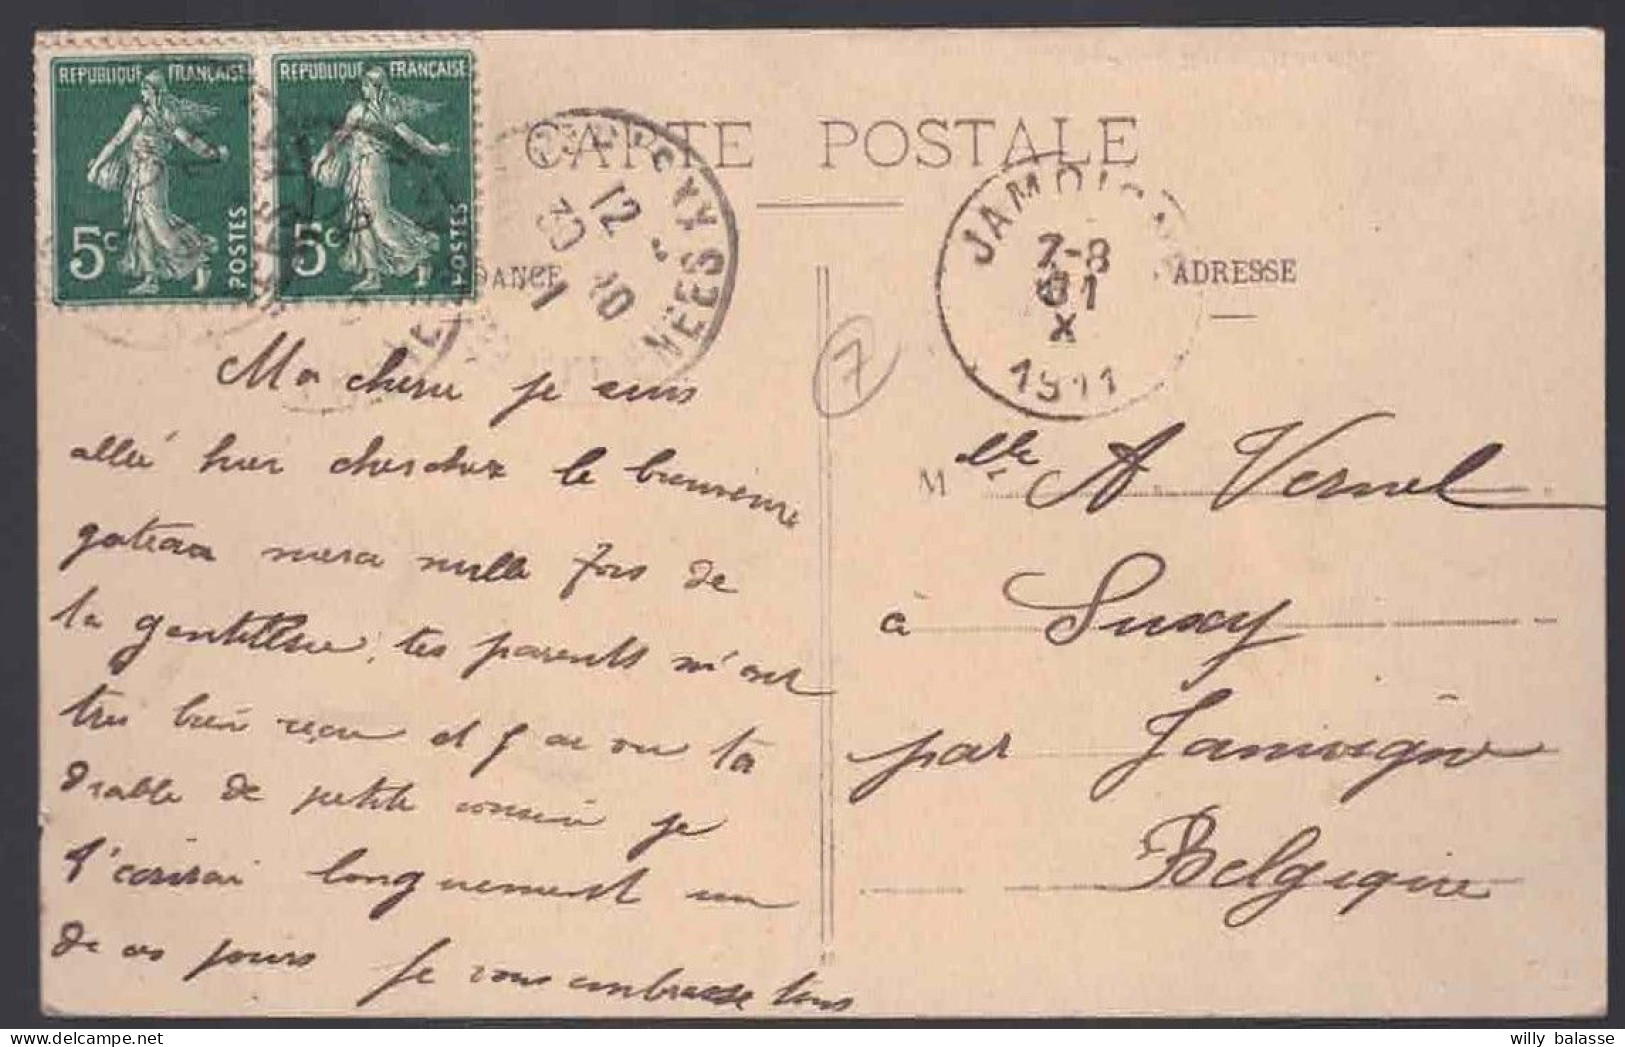 REPUBLIQUE FRANÇAISE
5c
POSTES
REPUBLIQUE FRANÇAISE
5c
POSTES
CARTE POSTALE
12
30
10
11
JAMOIGNE
7-8
X
1911
ADRESSE
7
Ma cherie je suis
allée hier chercher le bienvenu
gateau merci mille fois de
ta gentillesse, tes parents m'ont
très bien reçu et j'ai vu ta
diable de petite cousine je
t'écrirai longuement un
de ces jours je vous embrasse tous
Mlle A Vernel
à Suxy
par Jamoigne
Belgique
willy balasse